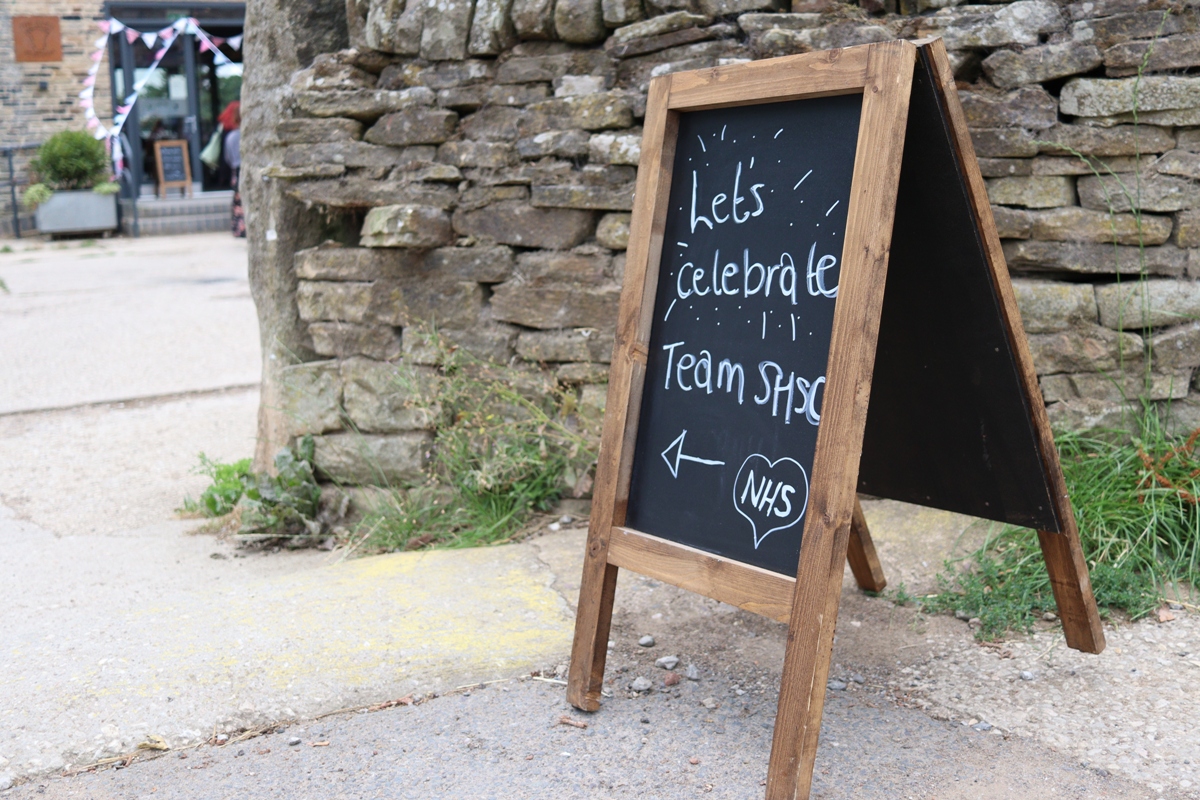 Let's
celebrate
Team SHSC
NHS